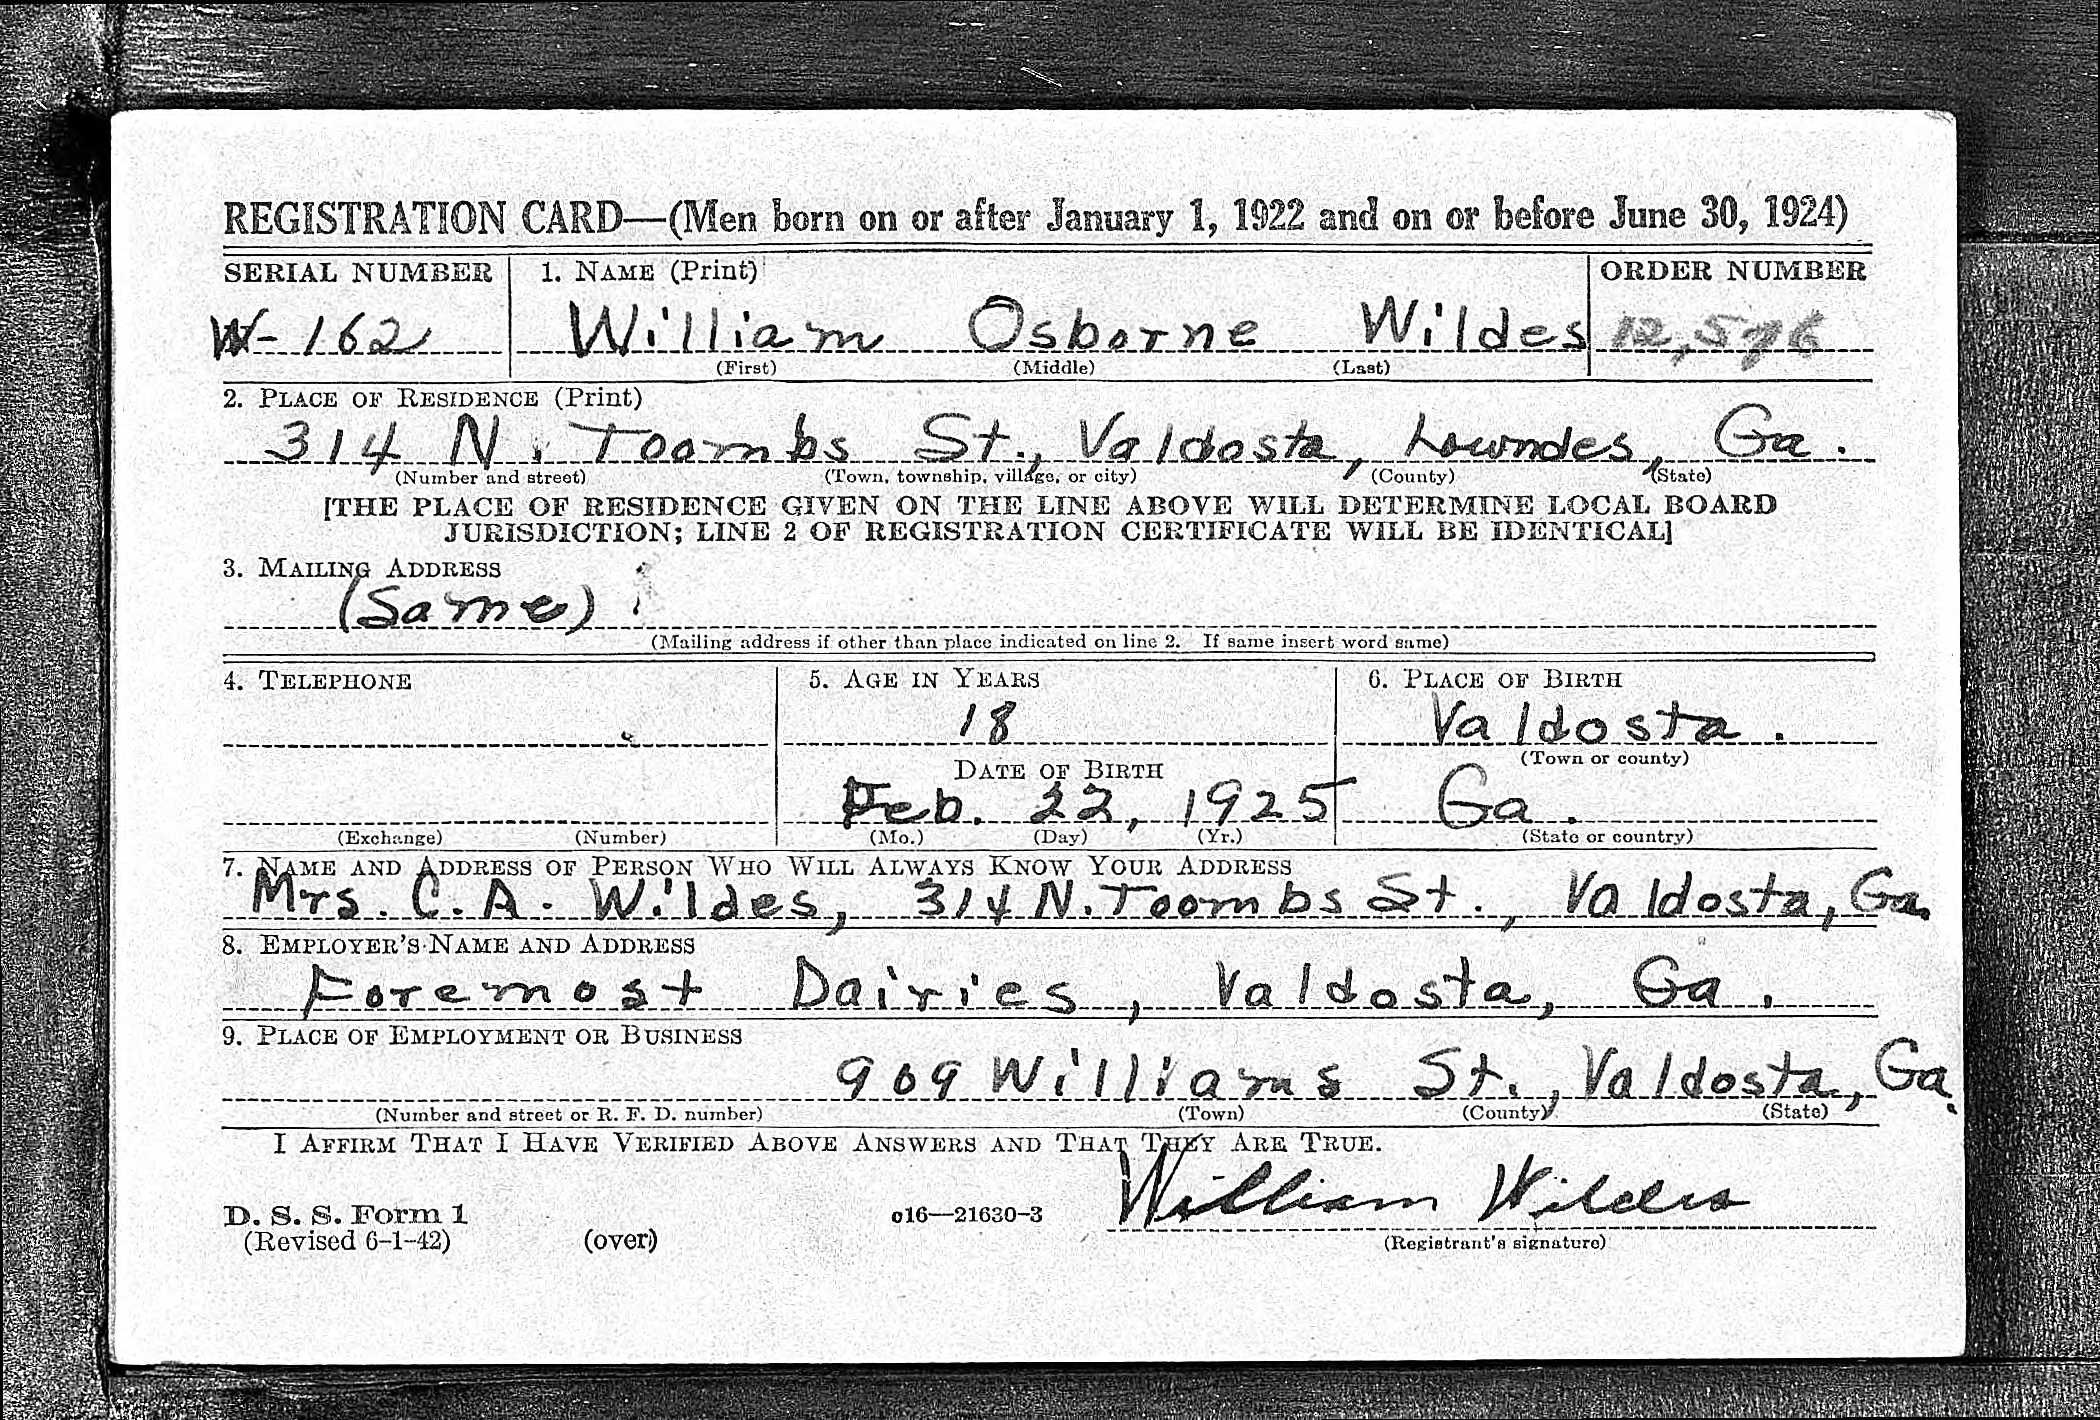 REGISTRATION CARD—(Men born on or after January 1, 1922 and on or before June 30, 1924)
SERIAL NUMBER 1. NAME (Print) ORDER NUMBER
W-162 William Osborne Wildes 12,576
(First) (Middle) (Last)
2. PLACE OF RESIDENCE (Print)
314 N. Toombs St., Valdosta, Lowndes, Ga.
(Number and street) (Town, township, village, or city) (County) (State)
[THE PLACE OF RESIDENCE GIVEN ON THE LINE ABOVE WILL DETERMINE LOCAL BOARD
JURISDICTION; LINE 2 OF REGISTRATION CERTIFICATE WILL BE IDENTICAL]
3. MAILING ADDRESS
(Same)
(Mailing address if other than place indicated on line 2. If same insert word same)
4. TELEPHONE 5. AGE IN YEARS 6. PLACE OF BIRTH
18 Valdosta.
(Town or county)
DATE OF BIRTH
Feb. 22, 1925 Ga.
(Exchange) (Number) (Mo.) (Day) (Yr.) (State or country)
7. NAME AND ADDRESS OF PERSON WHO WILL ALWAYS KNOW YOUR ADDRESS
Mrs. C. A. Wildes, 314 N. Toombs St., Valdosta, Ga.
8. EMPLOYER'S NAME AND ADDRESS
Foremost Dairies, Valdosta, Ga.
9. PLACE OF EMPLOYMENT OR BUSINESS
909 Williams St., Valdosta, Ga.
(Number and street or R. F. D. number) (Town) (County) (State)
I AFFIRM THAT I HAVE VERIFIED ABOVE ANSWERS AND THAT THEY ARE TRUE.
William Wildes
D. S. S. Form 1 c16—21630-3
(Revised 6-1-42) (over) (Registrant's signature)